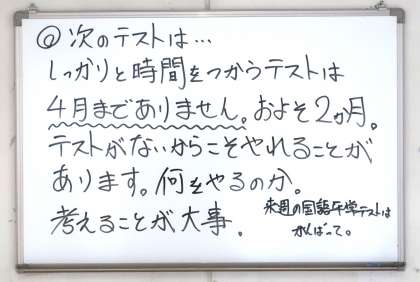 @ 次のテストは…
しっかりと時間をつかうテストは
4月までありません。およそ2か月。
テストがないからこそやれることが
あります。何をやるのか。
考えることが大事。
来週の国語 学テストは
がんばって。